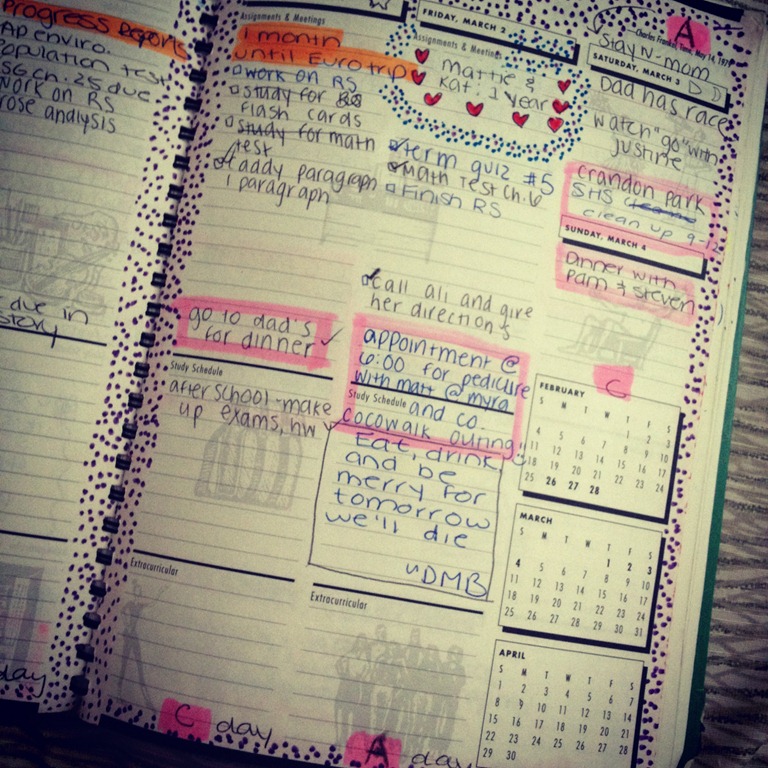 Progress Reports
AP enviro.
Population test
SG ch. 25 due
work on RS
prose analysis
due in
story
day
Assignments & Meetings
1 month
until Eurotrip
work on RS
study for
flash cards
study for math
test
add paragraph
1 paragraph
go to dad's
for dinner ✓
Study Schedule
after school - make
up exams, hw
Extracurricular
C day
FRIDAY, MARCH 2
Assignments & Meetings
mattie &
Kat: 1 year
term quiz #5
Math Test Ch. 6
Finish RS
call ali and give
her directions
appointment @
6:00 for pedicure
with matt @ myra
Study Schedule and co.
cocowalk outing!
Eat, drink,
and be
merry for
tomorrow
we'll die
~DMB
Extracurricular
A day
A
Charles Frankel, Time, May 14, 1979
Stay N-mom
SATURDAY, MARCH 3
Dad has race
watch "go" with
justine
crandon park
SHS
clean up 9-12
SUNDAY, MARCH 4
Dinner with
Pam & Steven
C
FEBRUARY
S M T W T F S
1 2 3
4 5 6 7 8 9 10
11 12 13 14 15 16 17
18 19 20 21 22 23 24
25 26 27 28
MARCH
S M T W T F S
1 2 3
4 5 6 7 8 9 10
11 12 13 14 15 16 17
18 19 20 21 22 23 24
25 26 27 28 29 30 31
APRIL
S M T W T F S
1 2 3 4 5 6 7
8 9 10 11 12 13 14
15 16 17 18 19 20 21
22 23 24 25 26 27 28
29 30